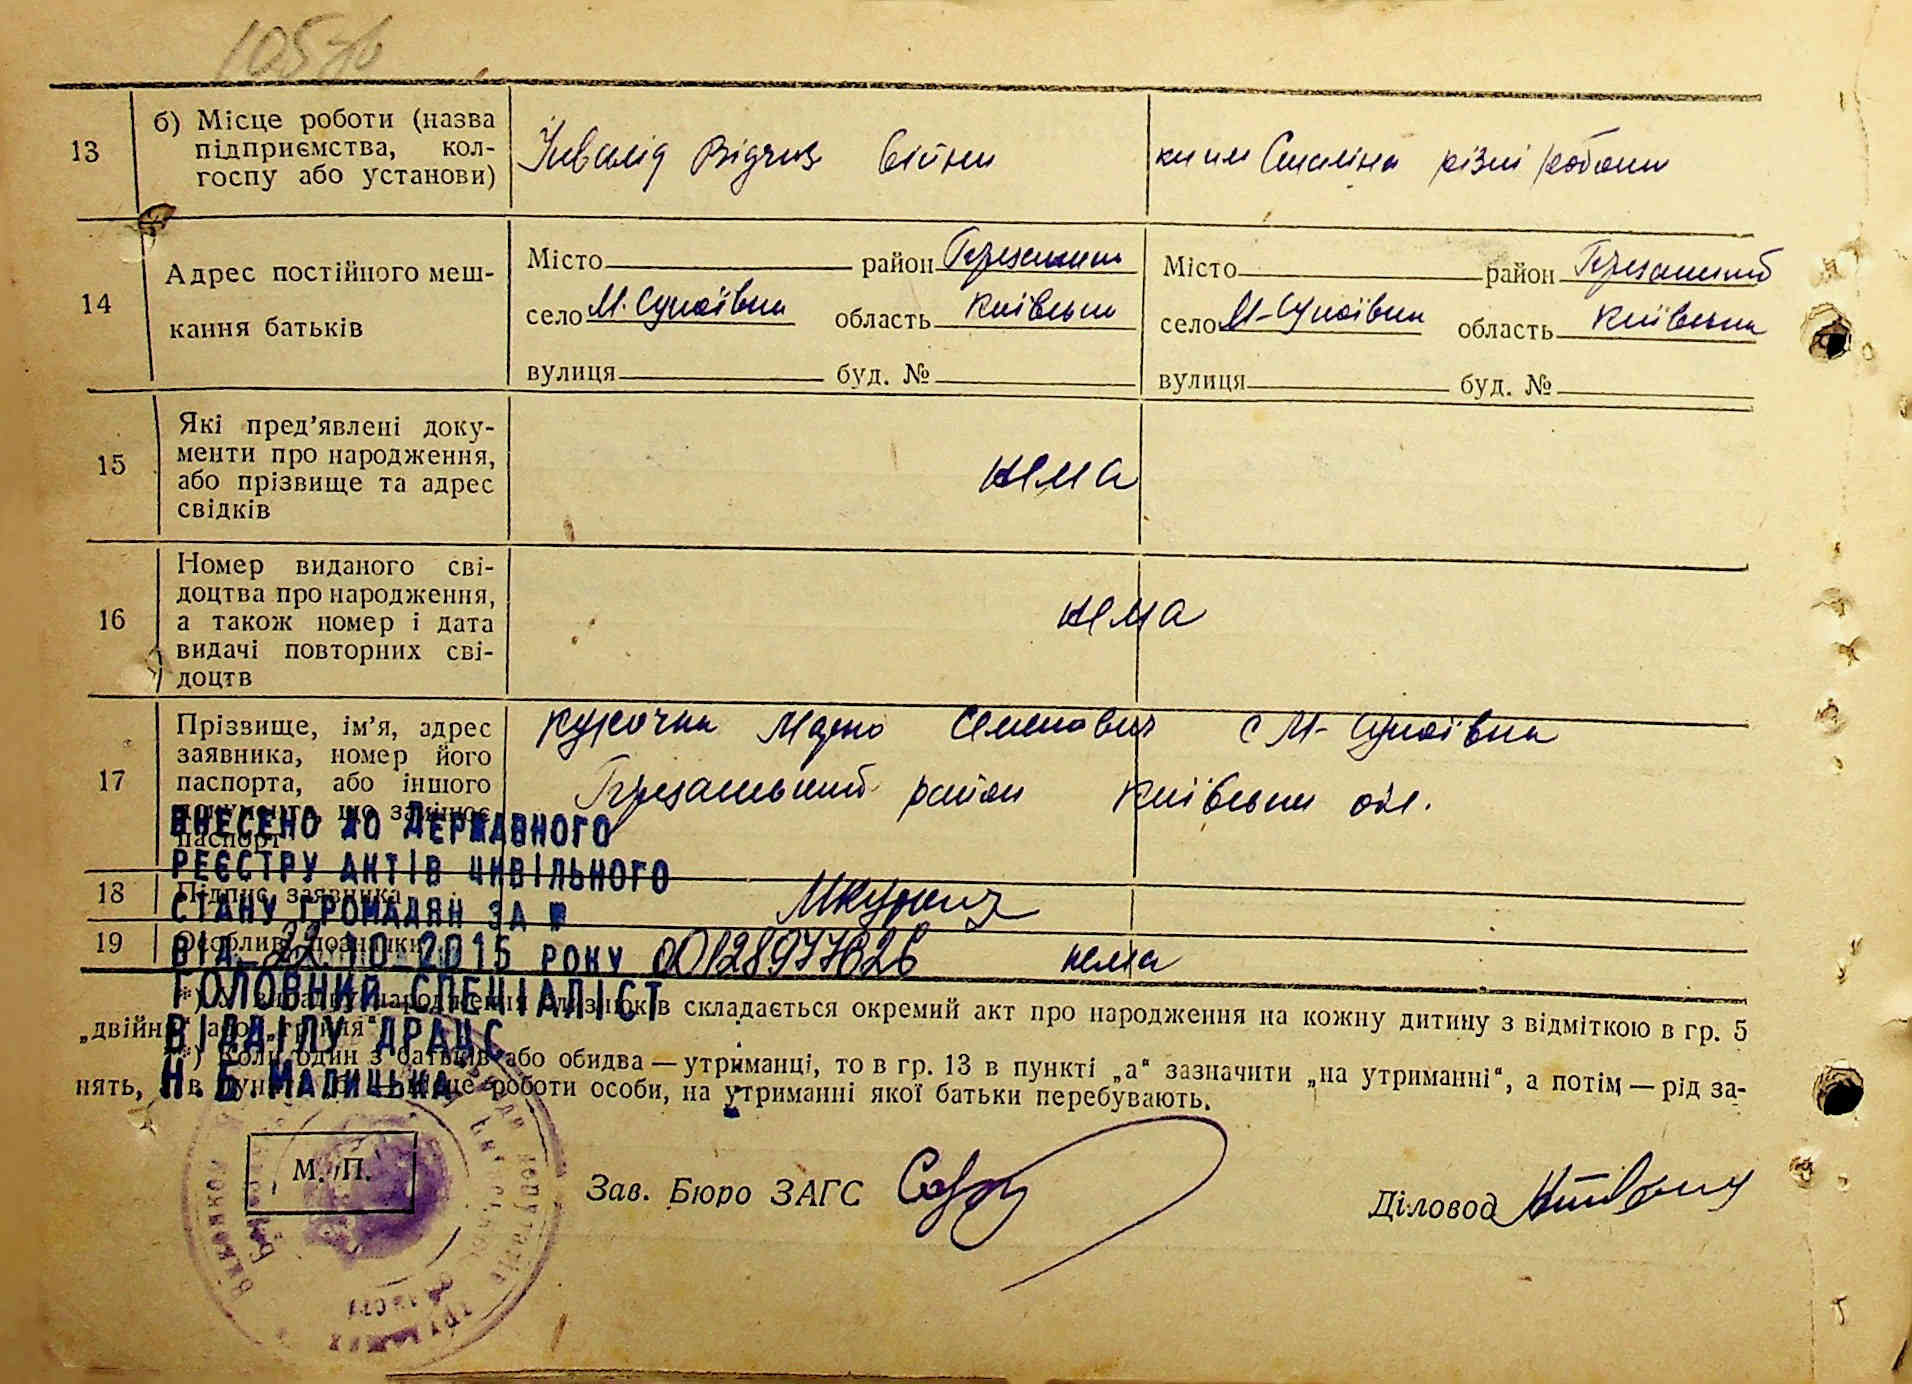 13
б) Місце роботи (назва
підприємства, кол-
госпу або установи)
Інвалід Відчиз війни
к-п им Сталіна різні роботи
14
Адрес постійного меш-
кання батьків
Місто район
село М. Супоївка область Київськи
вулиця буд. №
Місто район
село М-Супоївка область Київська
вулиця буд. №
15
Які пред'явлені доку-
менти про народження,
або прізвище та адрес
свідків
нема
16
Номер виданого сві-
доцтва про народження,
а також номер і дата
видачі повторних сві-
доцтв
нема
17
Прізвище, ім'я, адрес
заявника, номер його
паспорта, або іншого
документа, що замінює
паспорт
Семенович с М-Супоївка
район Київськи обл.
18
Підпис заявника
19
Особливі позначки
нема
ВНЕСЕНО ДО ДЕРЖАВНОГО
РЕЄСТРУ АКТІВ ЦИВІЛЬНОГО
СТАНУ ГРОМАДЯН ЗА №
ВІД 22.10 2015 РОКУ 00128977626
ГОЛОВНИЙ СПЕЦІАЛІСТ
ВІДДІЛУ ДРАЦС
Н.Б.МАЛИЦЬКА
*) У випадку народження близнюків складається окремий акт про народження на кожну дитину з відміткою в гр. 5
„двійня" або „трійня".
*) Коли один з батьків або обидва — утриманці, то в гр. 13 в пункті „а" зазначити „на утриманні", а потім — рід за-
нять, в пункті місце роботи особи, на утриманні якої батьки перебувають.
М. П.
Зав. Бюро ЗАГС
Діловод